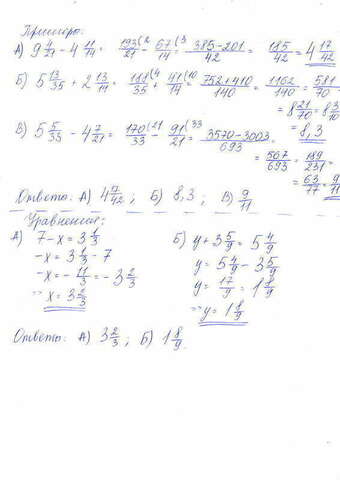 Примеры:
А) 9 4/21 - 4 11/14 = 193/21 (2 - 67/14 (3 = 385-201/42 = 115/42 = 4 17/42
Б) 5 13/35 + 2 13/14 = 188/35 (4 + 41/14 (10 = 752+410/140 = 1162/140 = 581/70
= 8 21/70 = 8 3/10
= 8,3
В) 5 5/33 - 4 7/21 = 170/33 (21 - 91/21 (33 = 3570-3003/693 =
= 567/693 = 189/231 =
= 63/77 = 9/11
Ответы: А) 4 17/42 ; Б) 8,3 ; В) 9/11
Уравнения:
А) 7-x = 3 1/3
-x = 3 1/3 - 7
-x = - 11/3 = -3 2/3
x = 3 2/3
Б) y + 3 5/9 = 5 4/9
y = 5 4/9 - 3 5/9
y = 17/9 = 1 8/9
y = 1 8/9
Ответы: А) 3 2/3 ; Б) 1 8/9.